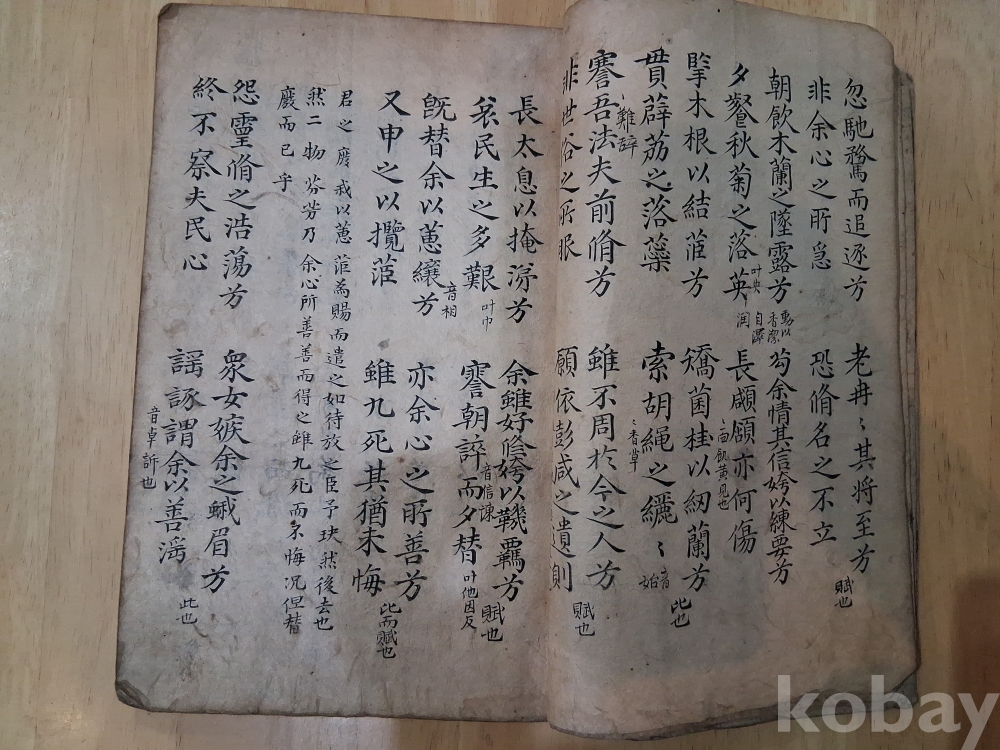 忽馳騖而追逐兮 老冉〻其將至兮 賦也
非余心之所急 恐脩名之不立
朝飲木蘭之墜露兮 動以香潔自潤澤 苟余情其信姱以練要兮
夕餐秋菊之落英 叶央 長顑頷亦何傷 面飢黃皃也
擥木根以結茝兮 矯菌桂以紉蘭兮 比也
貫薜荔之落蘂 索胡繩之纚〻 香草 音始
謇吾法夫前脩兮 難辭 雖不周於今之人兮
非世俗之所服 願依彭咸之遺則 賦也
長太息以掩涕兮 余雖好脩姱以鞿羈兮 賦也
哀民生之多艱 叶巾 謇朝誶而夕替 音信諫 叶他因反
既替余以蕙纕兮 音相 亦余心之所善兮
又申之以攬茝 雖九死其猶未悔 比而賦也
君之廢我以蕙茝為賜而遣之如待放之臣予玦然後去也
然二物芬芳乃余心所善善而得之雖九死而不悔況但替
廢而已乎
怨靈脩之浩蕩兮 衆女嫉余之蛾眉兮 比也
終不察夫民心 謠諑謂余以善淫 音卓訴也
kobay